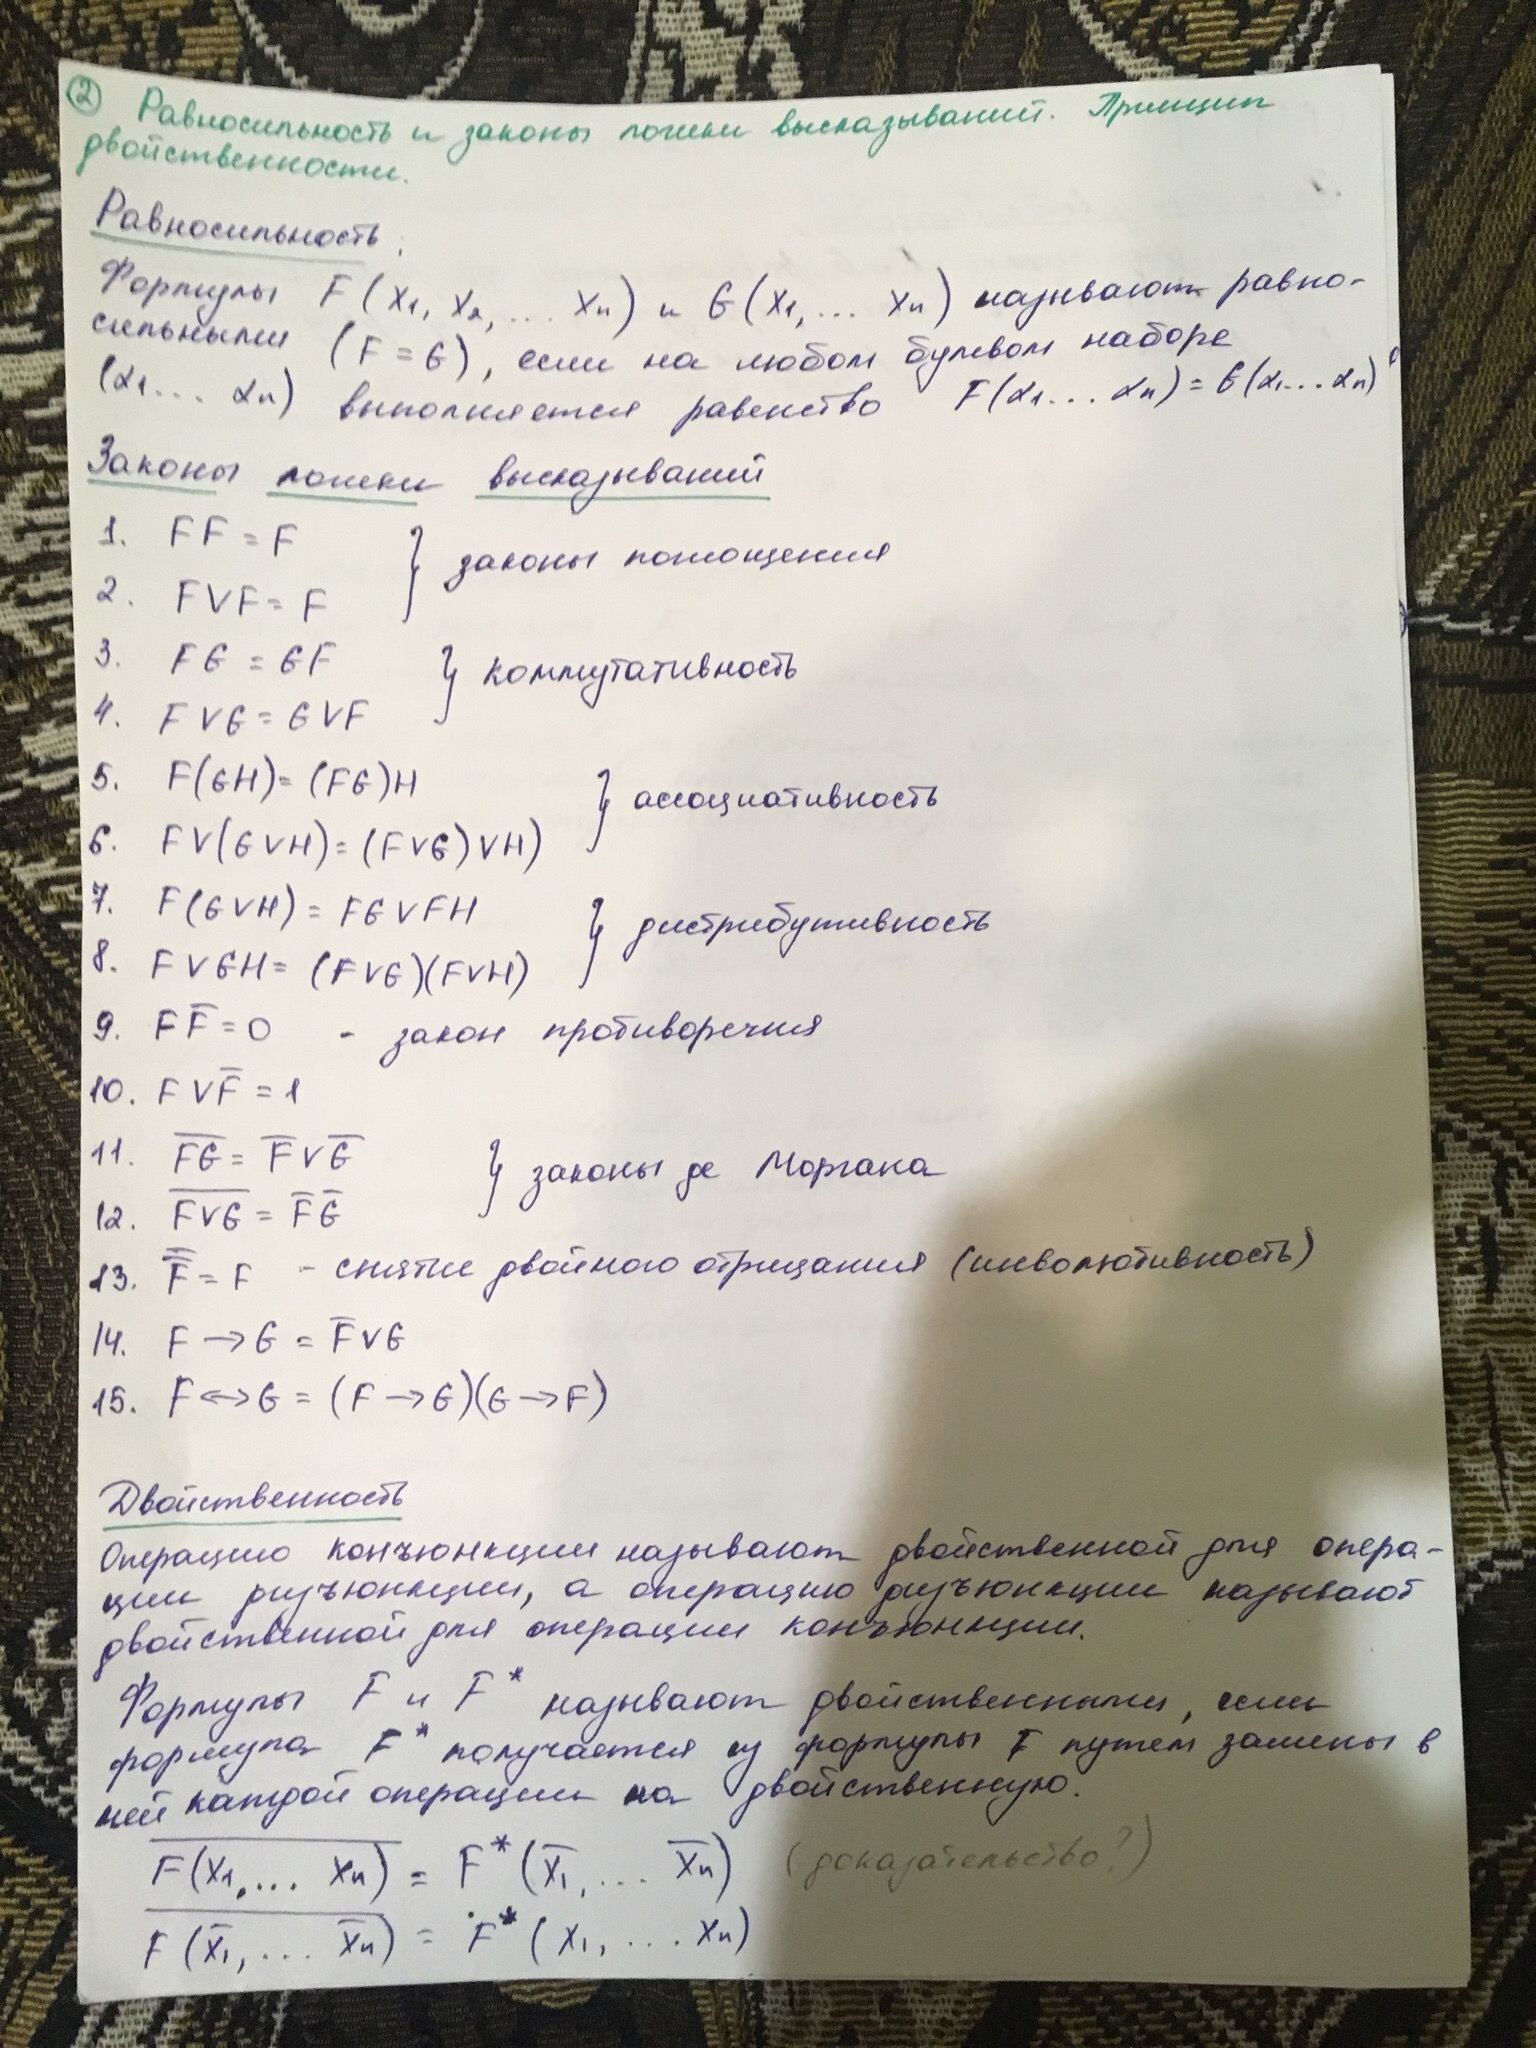 ② Равносильность и законы логики высказываний. Принцип
двойственности.
Равносильность.
Формулы F(x₁, x₂, ... xₙ) и G(x₁, ... xₙ) называют равно-
сильными (F = G), если на любом булевом наборе
(α₁... αₙ) выполняется равенство F(α₁... αₙ) = G(α₁... αₙ)
Законы логики высказываний
1. FF = F
2. F∨F = F } законы поглощения
3. FG = GF
4. F∨G = G∨F } коммутативность
5. F(GH) = (FG)H
6. F∨(G∨H) = (F∨G)∨H) } ассоциативность
7. F(G∨H) = FG∨FH
8. F∨GH = (F∨G)(F∨H) } дистрибутивность
9. FF̅ = 0 - закон противоречия
10. F∨F̅ = 1
11. F̅G̅ = F̅∨G̅
12. F̅∨̅G̅ = F̅ G̅ } законы де Моргана
13. F̿ = F - снятие двойного отрицания (инволютивность)
14. F → G = F̅∨G
15. F ↔ G = (F → G)(G → F)
Двойственность
Операцию конъюнкции называют двойственной для опера-
ции дизъюнкции, а операцию дизъюнкции называют
двойственной для операции конъюнкции.
Формулы F и F* называют двойственными, если
формула F* получается из формулы F путем замены в
ней каждой операции на двойственную.
F̅(̅x̅₁̅,̅.̅.̅.̅ ̅x̅ₙ̅)̅ = F*(x̅₁, ... x̅ₙ) (доказательство?)
F̅(̅x̅₁̅,̅ ̅.̅.̅.̅ ̅x̅ₙ̅)̅ = F*(x₁, ... xₙ)